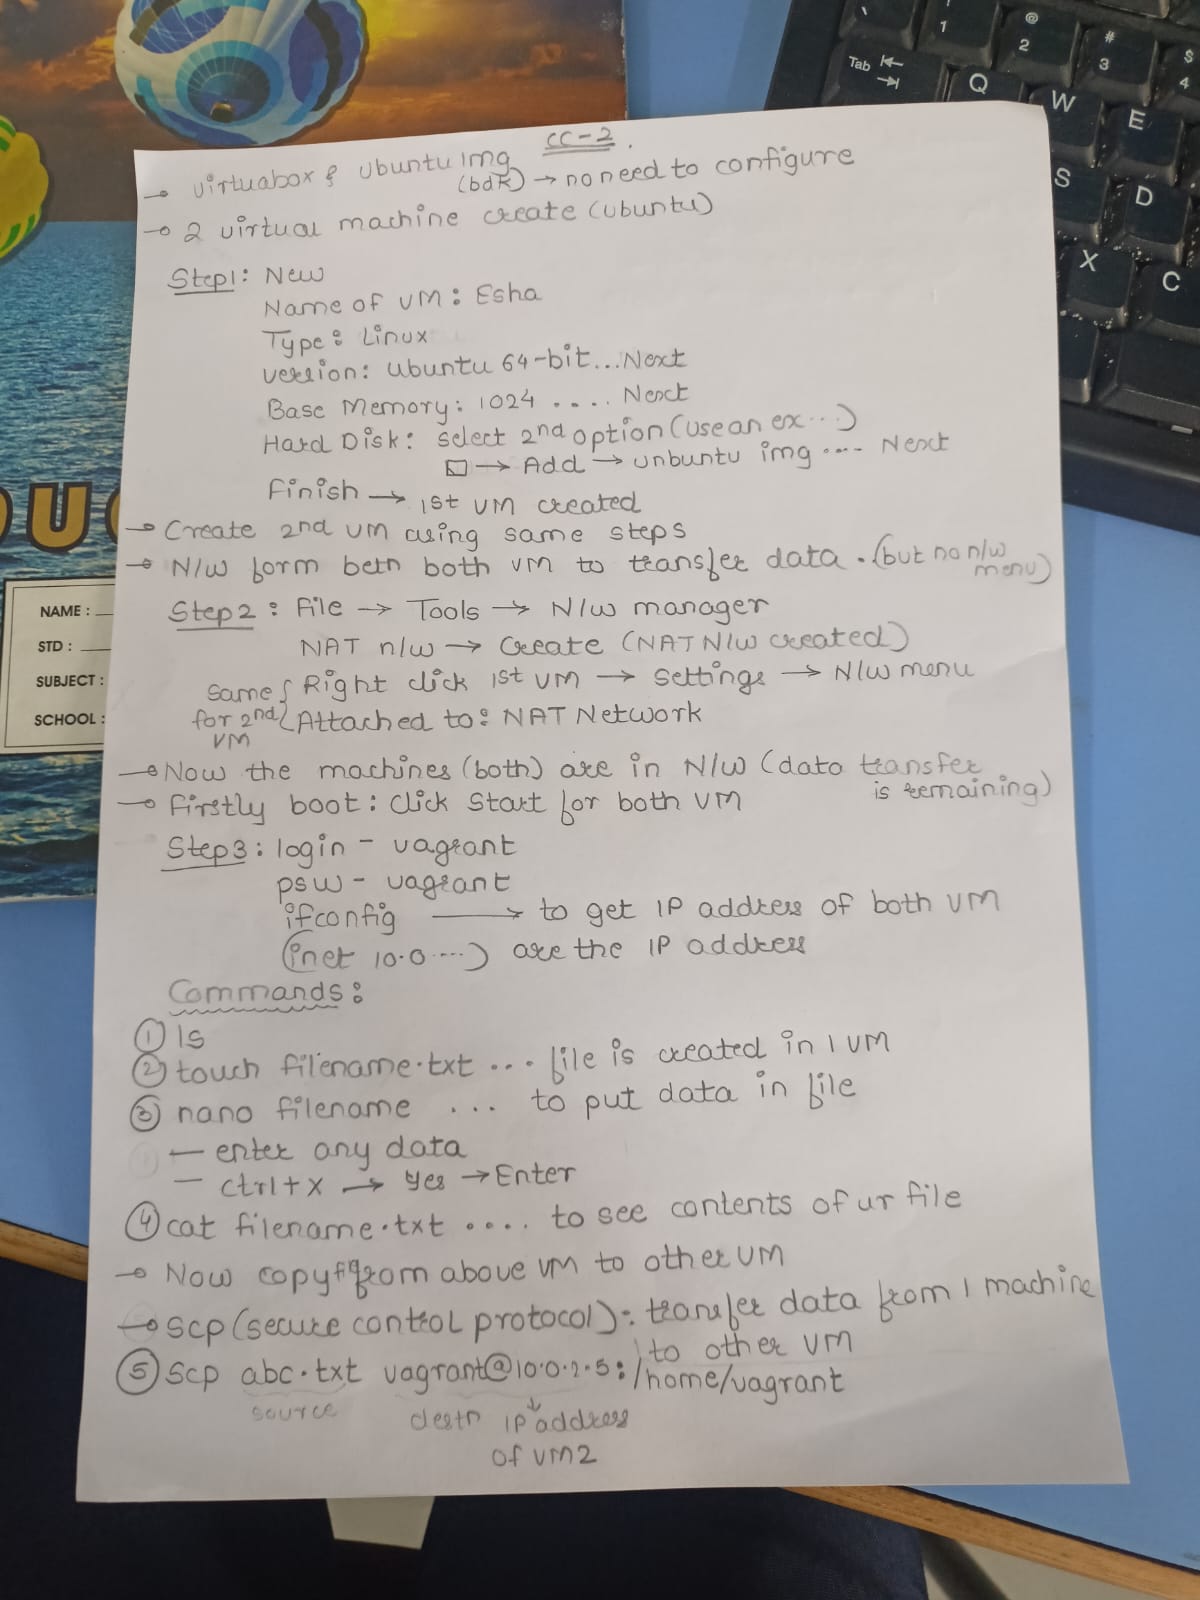 CC-2.
→ virtuabox & ubuntu img (bdk) → no need to configure
→ 2 virtual machine create (ubuntu)
Step1: New
Name of VM: Esha
Type: Linux
version: ubuntu 64-bit... Next
Base Memory: 1024 .... Next
Hard Disk: select 2nd option (use an ex...)
□ → Add → unbuntu img .... Next
Finish → 1st VM created
→ Create 2nd VM using same steps
→ N/w form betn both VM to transfer data. (but no n/w menu)
Step2: File → Tools → N/w manager
NAT n/w → Create (NAT N/W created)
Same for 2nd VM { Right click 1st VM → settings → N/w menu
Attached to: NAT Network
→ Now the machines (both) are in N/W (data transfer is remaining)
→ Firstly boot: Click Start for both VM
Step3: login - vagrant
psw - vagrant
ifconfig → to get IP address of both VM
(inet 10.0....) are the IP address
Commands:
① ls
② touch filename.txt ... file is created in 1 VM
③ nano filename ... to put data in file
— enter any data
— ctrl+x → yes → Enter
④ cat filename.txt .... to see contents of ur file
→ Now copy from above VM to other VM
→ scp (secure control protocol): transfer data from 1 machine
to other VM
⑤ scp abc.txt vagrant@10.0.2.5:/home/vagrant
source destn IP address
of VM2
NAME:
STD:
SUBJECT:
SCHOOL:
Tab
1
@ 2
# 3
$ 4
Q
W
E
S
D
X
C